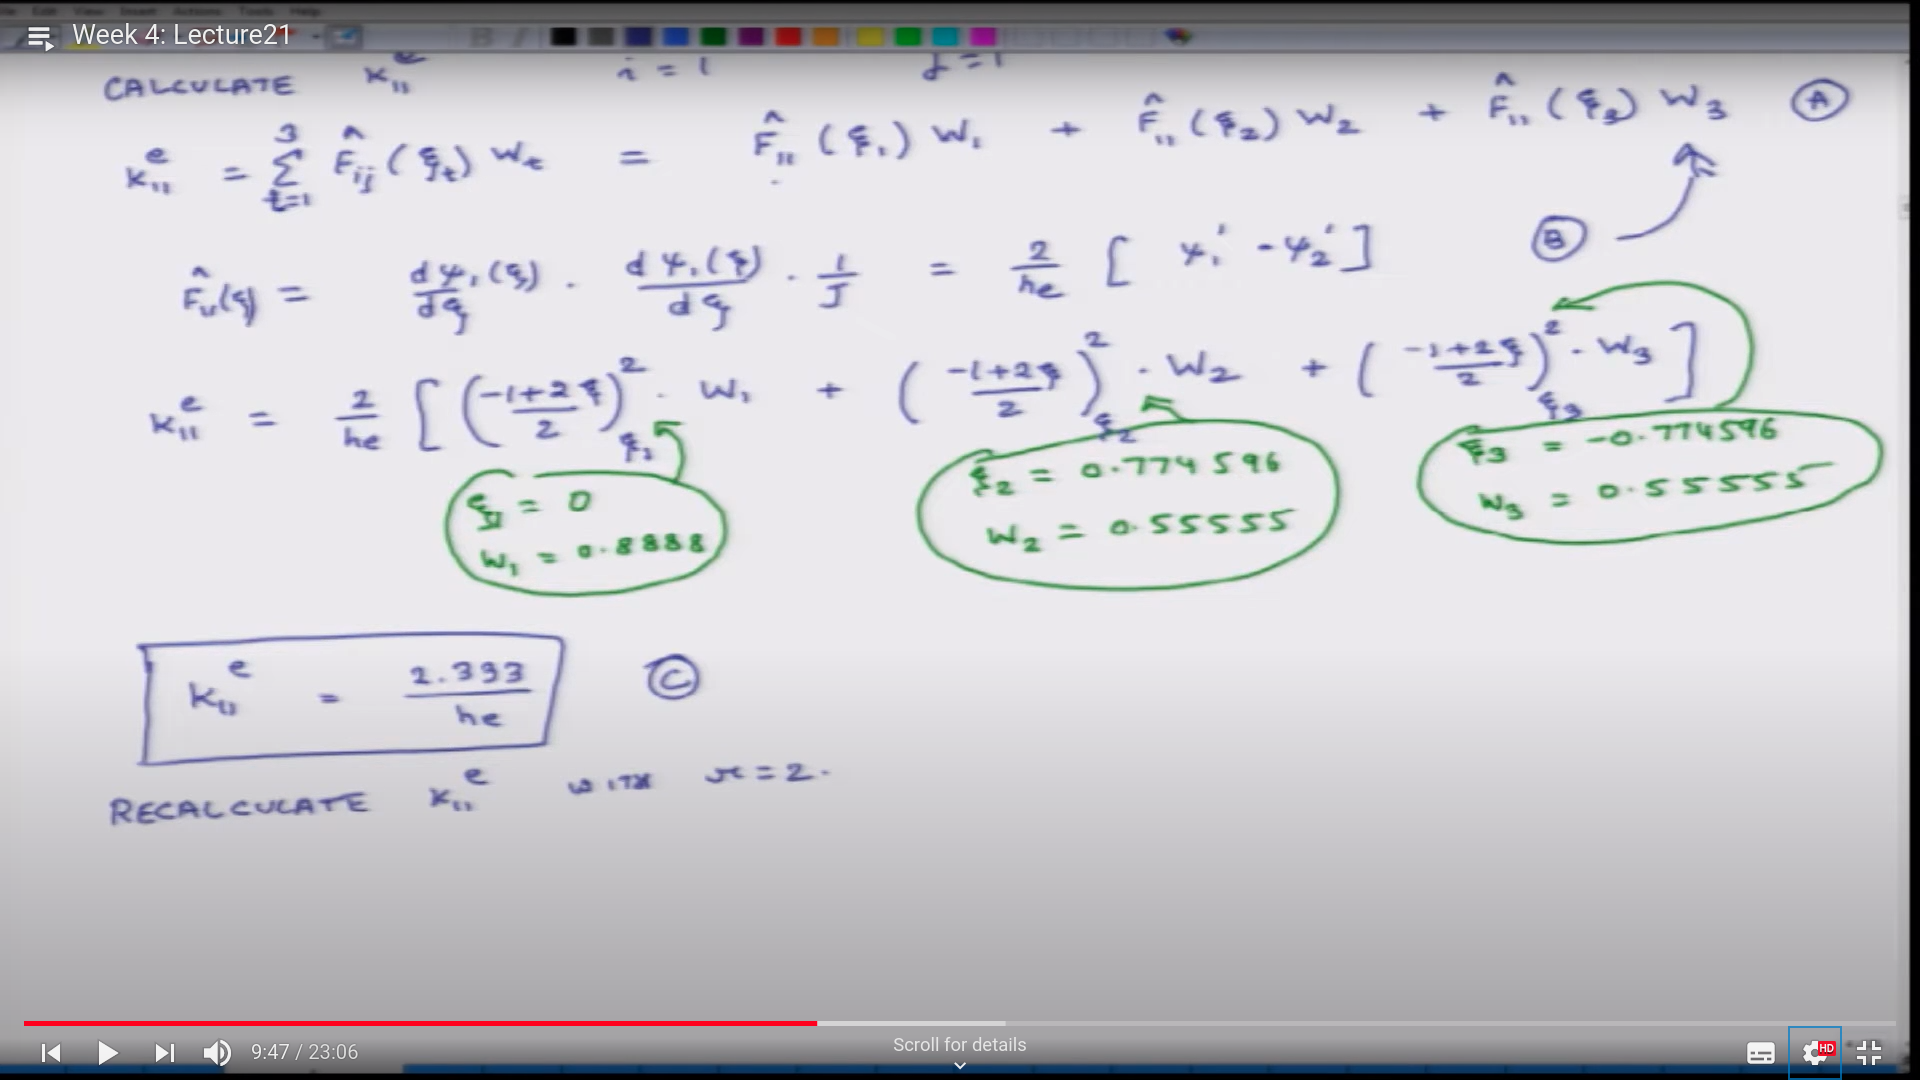 File Edit View Insert Actions Tools Help
Week 4: Lecture21
CALCULATE K₁₁ᵉ i = 1 j = 1
K₁₁ᵉ = Σ_{t=1}^{3} F̂ᵢⱼ(ξₜ) Wₜ = F̂₁₁(ξ₁) W₁ + F̂₁₁(ξ₂) W₂ + F̂₁₁(ξ₃) W₃ Ⓐ
F̂₁₁(ξ) = dψ₁(ξ)/dξ · dψ₁(ξ)/dξ · 1/J = 2/he [ ψ₁' - ψ₂' ] Ⓑ
K₁₁ᵉ = 2/he [ ((-1+2ξ)/2)²_ξ₁ · W₁ + ((-1+2ξ)/2)²_ξ₂ · W₂ + ((-1+2ξ)/2)²_ξ₃ · W₃ ]
ξ₁ = 0
W₁ = 0.8888
ξ₂ = 0.774596
W₂ = 0.55555
ξ₃ = -0.774596
W₃ = 0.55555
K₁₁ᵉ = 2.333/he Ⓒ
RECALCULATE K₁₁ᵉ WITH r = 2.
9:47 / 23:06
Scroll for details
HD